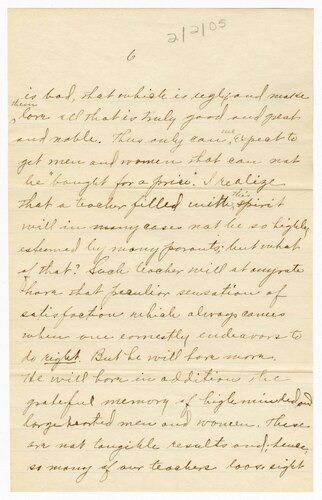 2/2/05
6
is bad, that which is ugly; and make
them
love all that is truly good and great
and noble. Thus only can we expect to
get men and women that can not
be "bought for a price. I realize
that a teacher filled with this spirit
will in many cases not be so highly
esteemed by many parents; but what
of that? Such teacher will at anyrate
have that peculiar sensation of
satisfaction which always comes
when one earnestly endeavors to
do right. But he will have more.
He will have in addition the
grateful memory of high minded and
large hearted men and women. These
are not tangible results and, hence,
so many of our teachers loose sight